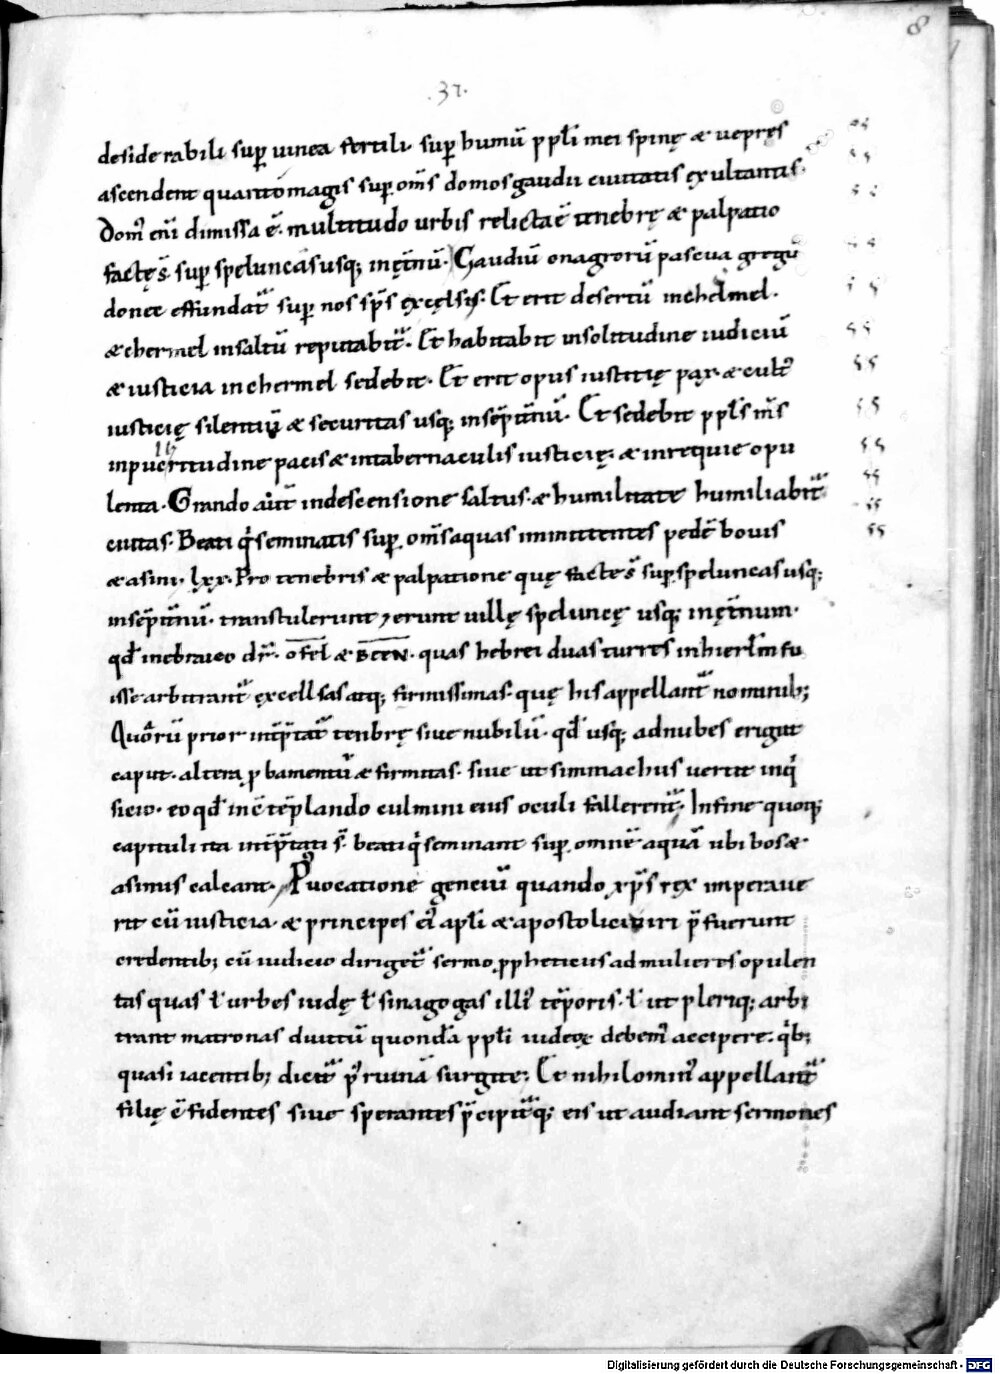 8
.37.
desiderabili sup̱ uinea fertili. sup̱ humū pp̄li mei spinę & uepręs
ascendent quanto magis sup̱ om̄s domos gaudii ciuitatis exultantis.
Dom' eni dimissa ē. multitudo urbis relicta ē tenebrę & palpatio
factę s̄ sup̱ speluncas usq; in ęt̄nū. Gaudiū onagrorū pascua gregū
donec effundat᷒ sup̱ nos sp̄s excęlsis. Et erit desertū inchelmel.
& chermel in saltū reputabit᷒. Et habitabit in solitudine iudiciū
& iusticia in chermel sedebit. Et erit opus iustitię pax. & cult'
iusticię silentiū & securitas usq; in sep̄it̄nū. Et sedebit pp̄ls m̄s
in pulcritudine pacis & in tabernaculis iusticię. & in requie opu
lenta. Grando aūt in descensione saltus. & humilitate humiliabit᷒
ciuitas. Beati q̇ seminatis sup̱ om̄s aquas inmittentes pedē bouis
& asini. lxx. Pro tenebris & palpatione quę factę s̄ sup̱ speluncas usq;
in sep̄it̄nū. transtulerunt, erunt uillę speluncę usq; in ęt̄num.
qd̄ in ebraico dr̄. ofel & bcen. quas hebrei duas turres in hierl̄m fu
isse arbitrant᷒ excellsas atq; firmissimas. quę his appellant᷒ nominib;
Quorū prior int̄p̄tat᷒ tenbrę siue nubilū. qd̄ usq; ad nubes erigat
caput. altera p̱bamentū & firmitas. siue ut simmachus uertit inq̇
sicio. eo qd̄ in c̄tēplando culmini eius oculi fallerent᷒. In fine quoq;
capituli ita int̄p̄tati s̄. beati q̇ seminant sup̱ omnē aquā ubi bos &
asinus calcant. Puocatione genciū quando xp̄s rex imperaue
rit cū iusticia. & principes ei' apl̄i & apostolici uiri p̄fuerunt
credentib; cū iudicio diriget᷒ sermo p̱pheticus ad mulieres opulen
tas quas ł urbes iudę ł sinagogas illi' tēporis. ł ut pleriq; arbi
trant matronas diuitū quondā pp̄li iudeoꝝ debem' accipere. q̇b;
quasi iacentib; dicit᷒ p̄ ruinā surgite. Et nihilomin' appellant᷒
filię c̄fidentes siue sperantes p̄cipit᷒q; eis ut audiant sermones
Digitalisierung gefördert durch die Deutsche Forschungsgemeinschaft - DFG